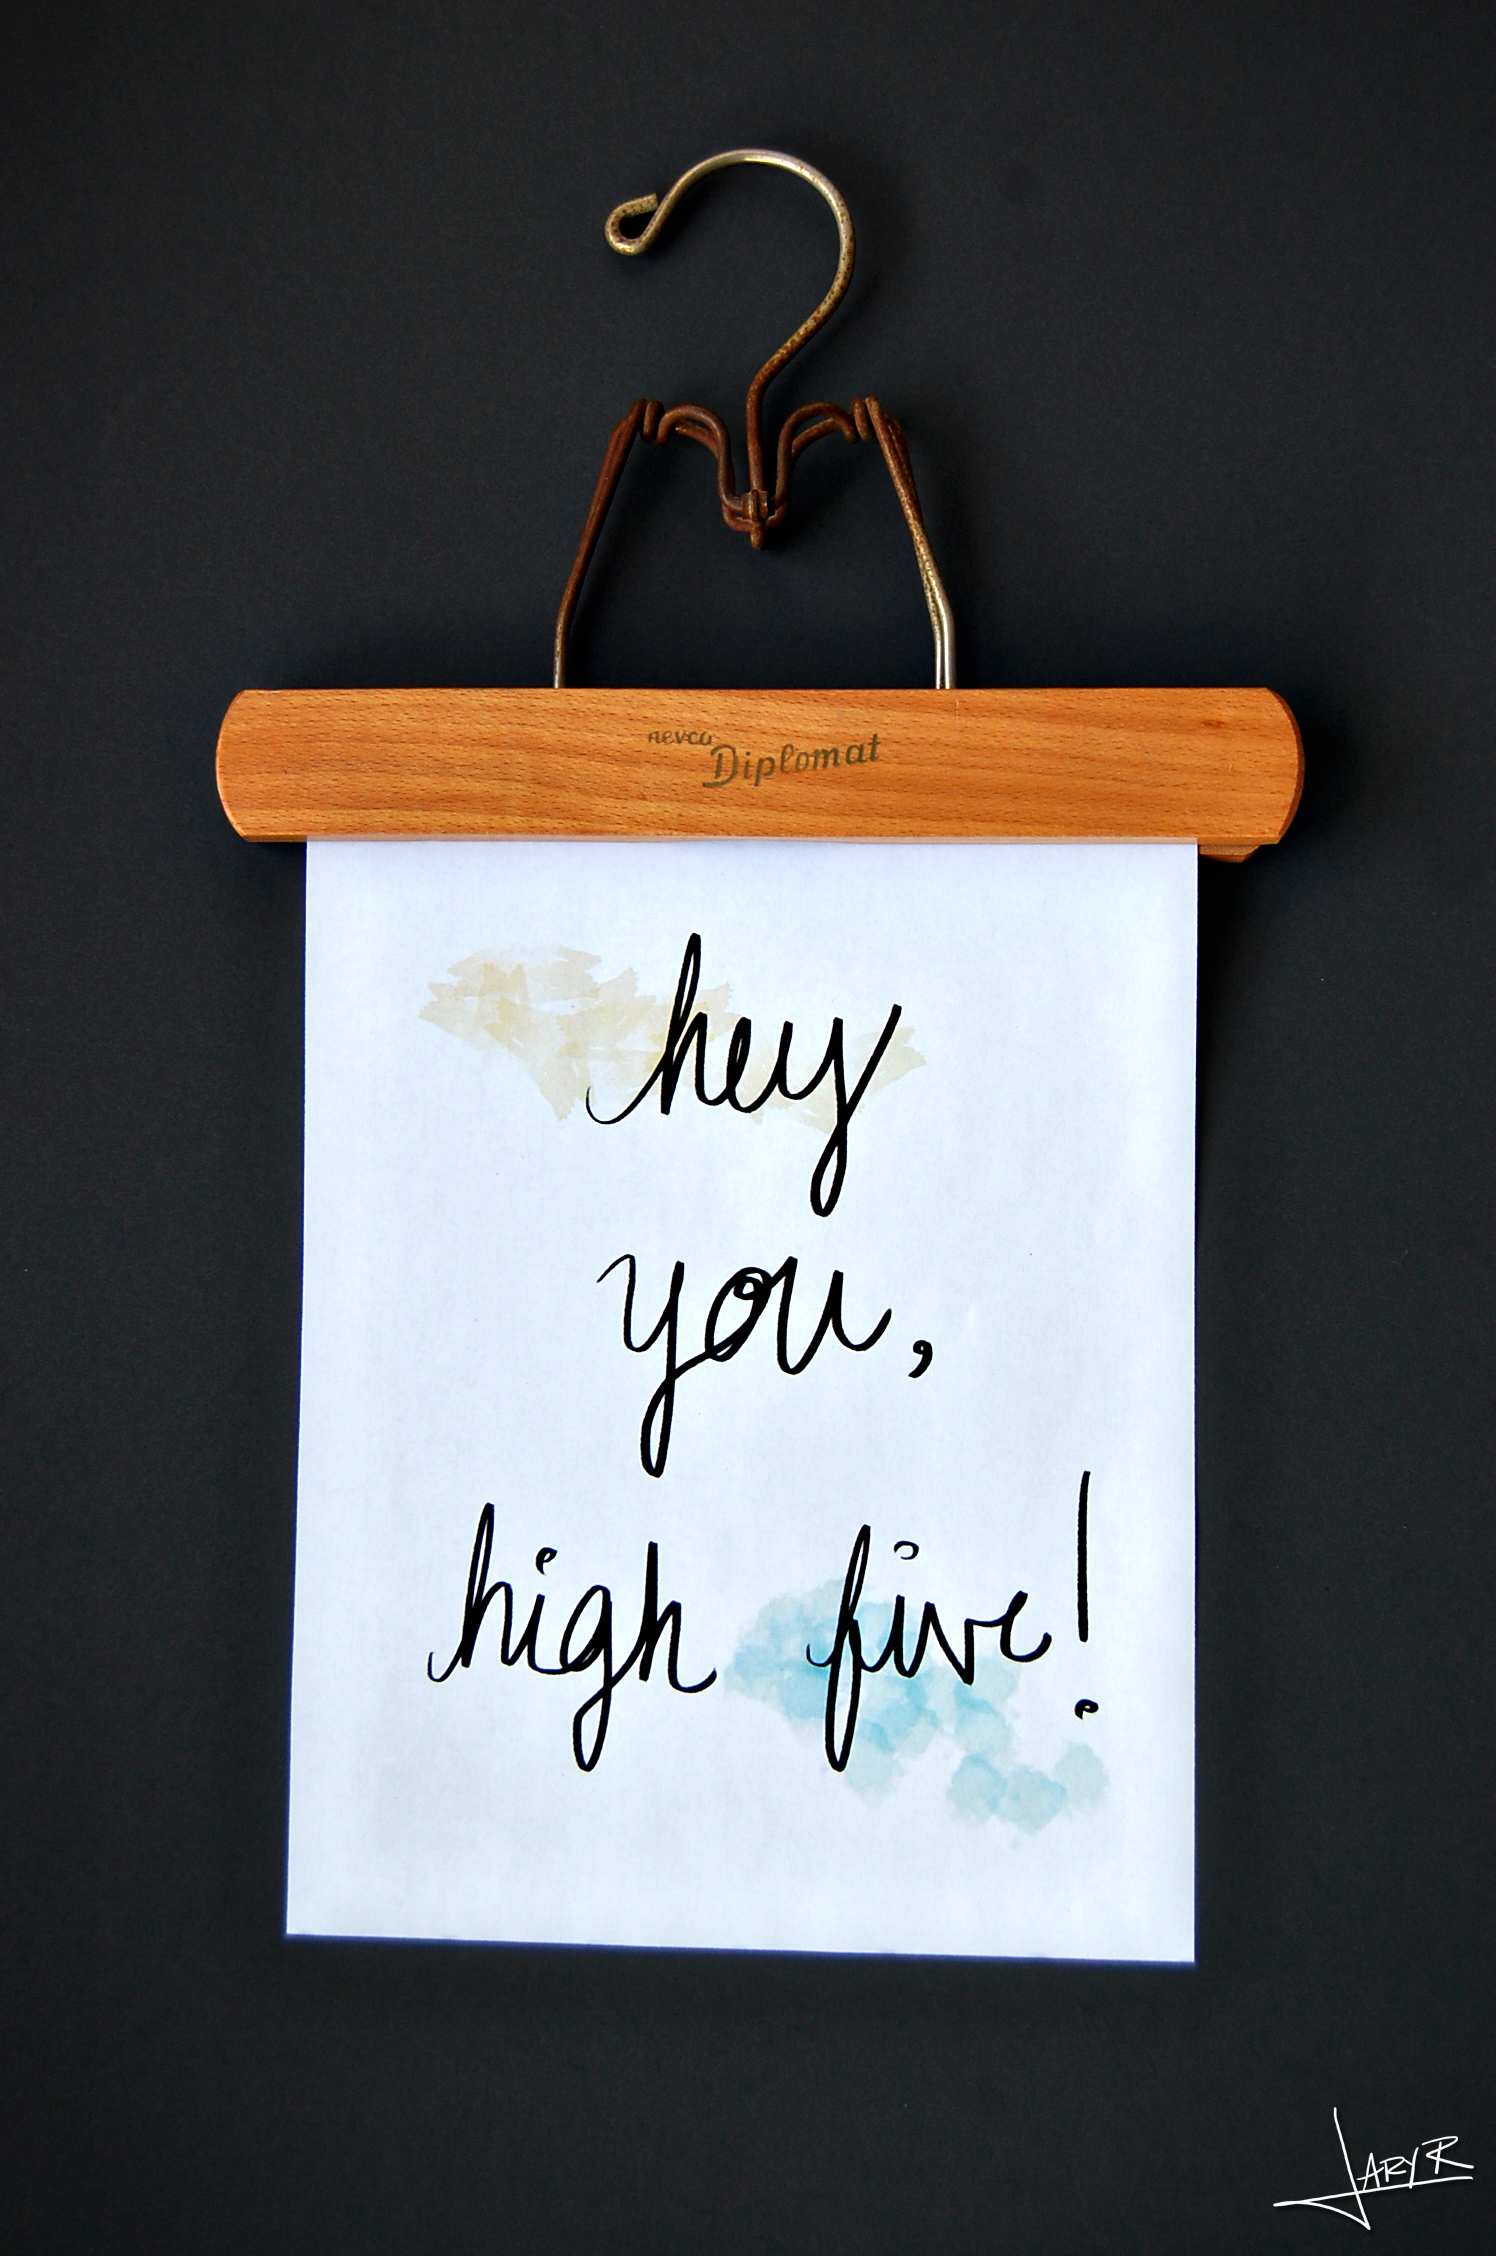 nevco
Diplomat
hey
you,
high five!
JARYR